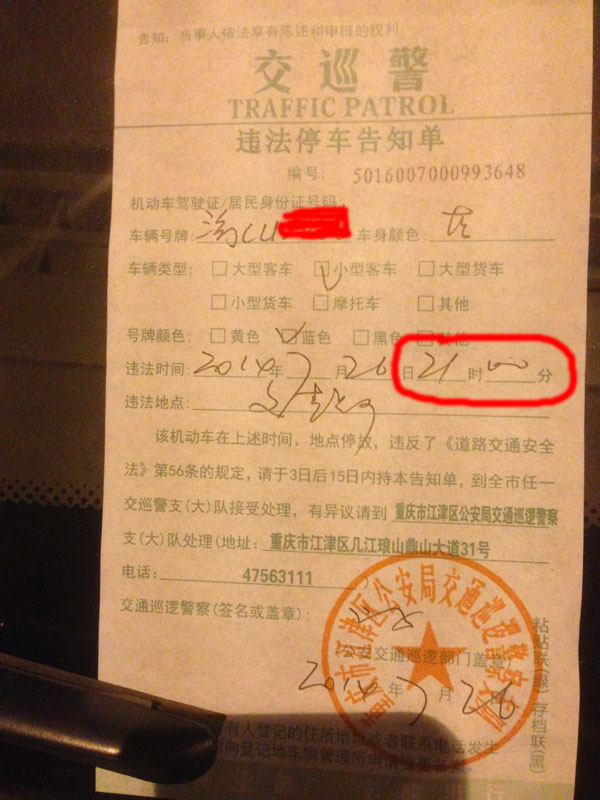 告知：当事人依法享有陈述和申辩的权利
交巡警
TRAFFIC PATROL
违法停车告知单
编号：5016007000993648
机动车驾驶证/居民身份证号码：
车辆号牌： 渝C 车身颜色：
车辆类型：□大型客车 □小型客车 □大型货车
□小型货车 □摩托车 □其他
号牌颜色：□黄色 □蓝色 □黑色 □其他
违法时间：2014年7月26日21时00分
违法地点：
该机动车在上述时间、地点停放，违反了《道路交通安全
法》第56条的规定，请于3日后15日内持本告知单，到全市任一
交巡警支(大)队接受处理，有异议请到 重庆市江津区公安局交通巡逻警察
支(大)队处理(地址：重庆市江津区几江琅山鼎山大道31号
电话：47563111）
交通巡逻警察(签名或盖章)：
公安交通巡逻部门盖章
2014年7月26
粘贴联(绿)存档联(黑)
有人登记的住所地址或者联系电话发生
可向登记地车辆管理所申请变更备案。